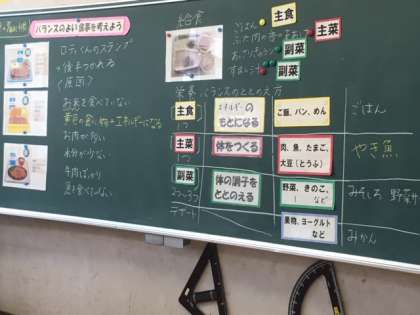 バランスのよい食事を考えよう
給食
ごはん
主食
主菜
副菜
副菜
すまし汁
栄養バランスのととのえ方
お米を食べていない
黄色の食べ物=エネルギーになる
お肉が多い
水分が少ない
牛肉ばかり
魚を食べていない
主食
1つ
エネルギーの
もとになる
ご飯、パン、めん
ごはん
主菜
1つ
体をつくる
肉、魚、たまご、
大豆(とうふ)
やき魚
副菜
体の調子を
ととのえる
野菜、きのこ、
など
みそしる 野菜
デザート
果物、ヨーグルト
など
みかん